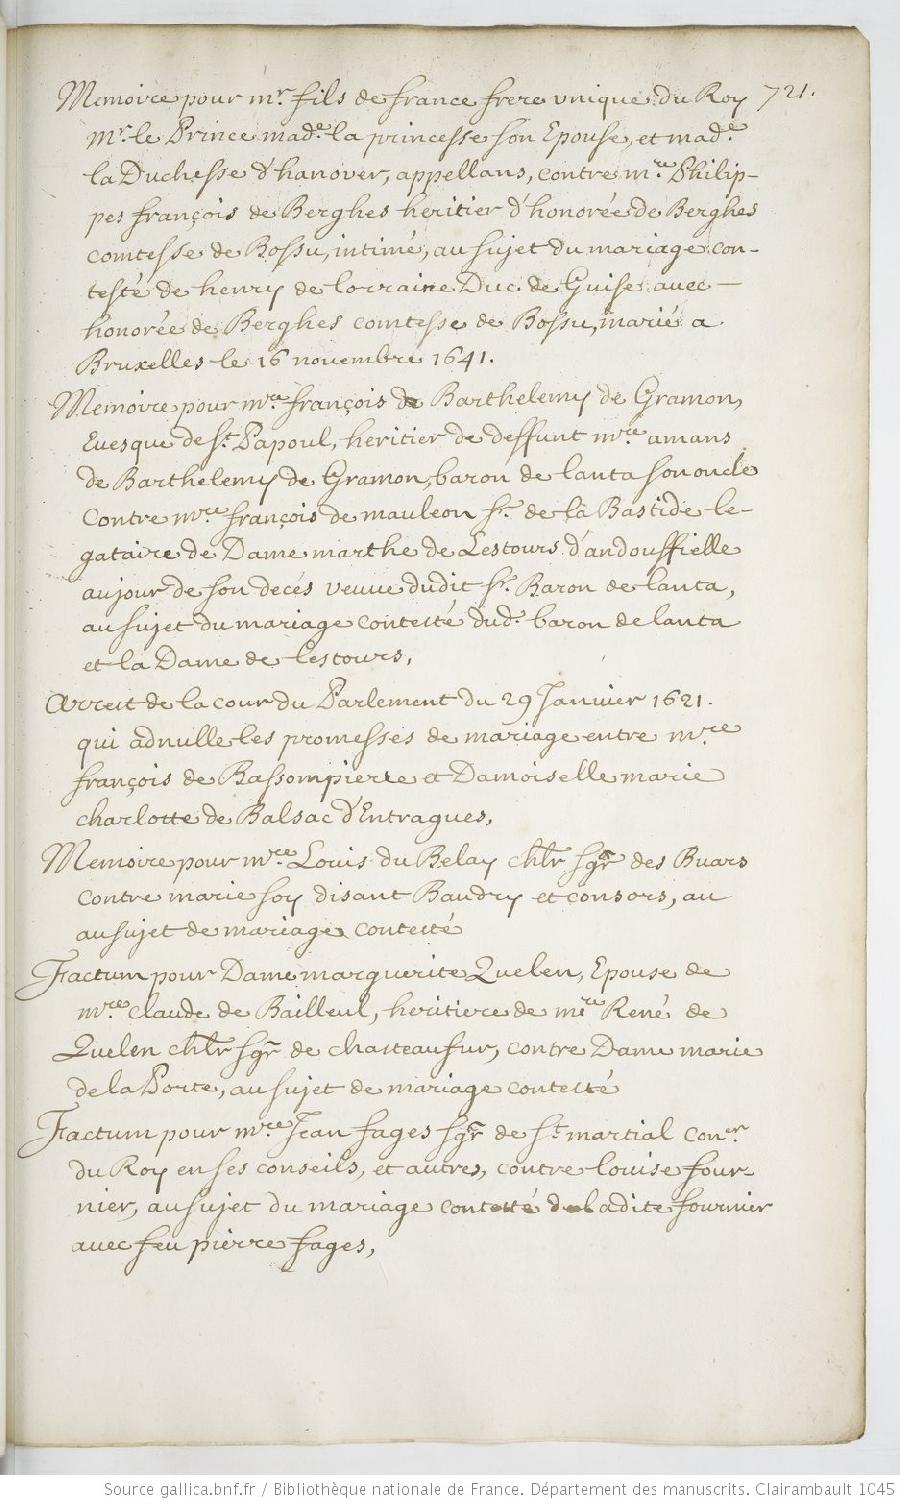 Memoire pour mr. fils de france frere vnique du Roy 721.
mr. le Prince made. la princesse son Epouse, et made.
la Duchesse d'hanover, appellans, contre mre. Philip-
pes françois de Berghes heritier d'honorée de Berghes
comtesse de Bossu, intimé, au sujet du mariage con-
testé de henry de lorraine Duc de Guise avec —
honorée de Berghes comtesse de Bossu, marié a
Bruxelles le 16 novembre 1641.
Memoire pour mre. françois de Barthelemy de Gramon,
Euesque de St. Papoul, heritier de deffunt mre. amans
de Barthelemy de Gramon, baron de lanta son oncle
contre mre. françois de mauleon sr. de la Bastide le-
gataire de Dame marthe de Lestours d'andouffielle
au jour de son decés veuue dudit sr. Baron de lanta,
au sujet du mariage contesté dud. baron de lanta
et la Dame de lestours,
Arrest de la cour du Parlement du 29 Janvier 1621.
qui adnulle les promesses de mariage entre mre
françois de Bassompierre et Damoiselle marie
charlotte de Balsac d'Entragues,
Memoire pour mre. Louis du Belay chlr sgr des Buars
contre marie soy disant Baudry et consors, au
au sujet de mariage contesté
Factum pour Dame marguerite Quelen, Epouse de
mre. claude de Bailleul, heritiere de mre. René de
Quelen chlr sgr de chasteaufur, contre Dame marie
de la Porte, au sujet de mariage contesté
Factum pour mre. Jean fages sgr de St. martial coner.
du Roy en ses conseils, et autres, contre louise four-
nier, au sujet du mariage contesté de ladite fournier
avec feu pierre fages,
Source gallica.bnf.fr / Bibliothèque nationale de France. Département des manuscrits. Clairambault 1045